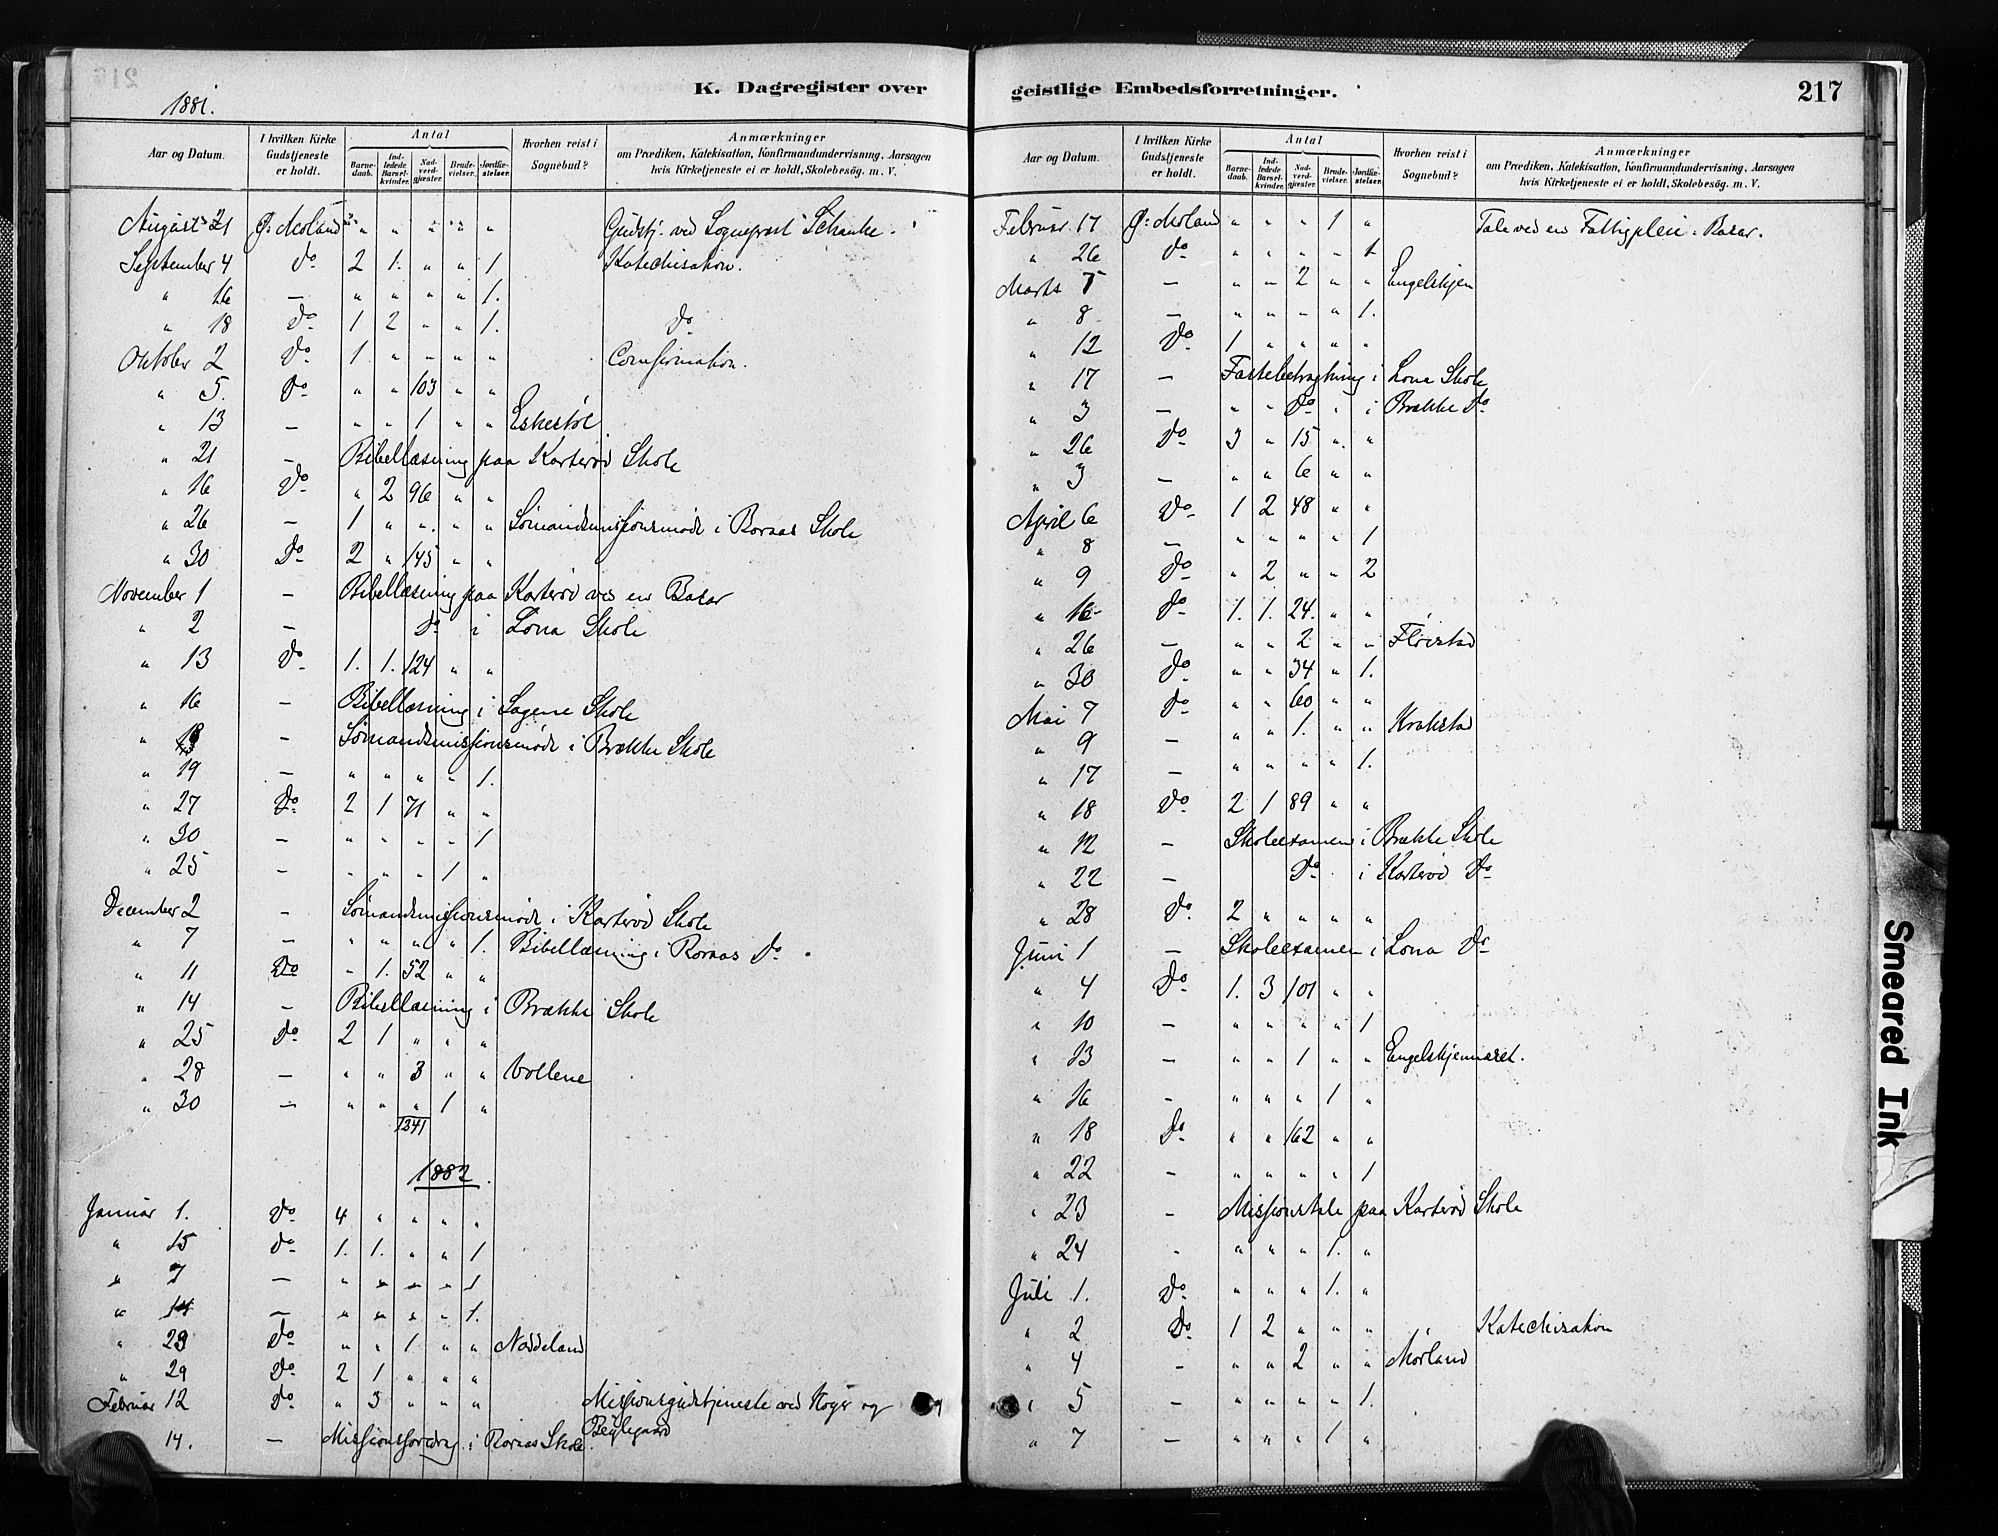 K. Dagregister over
1881.
Aar og Datum. | I hvilken Kirke Gudstjeneste er holdt. | Antal: Barnedaab. | Indledede Barselkvinder. | Nadverdgjæster. | Brudevielser. | Jordfæstelser. | Hvorhen reist i Sognebud? | Anmærkninger om Prædiken, Katekisation, Konfirmandundervisning, Aarsagen hvis Kirketjeneste ei er holdt, Skolebesög. m. V.
August 21 Ø: Moland " " " " " Gudstj. ved Sogneprest Schanke.
September 4 Do 2 1. " " 1 Katechisation.
" 16 — " " " " 1.
" 18 Do 1 2 " " 1. Do
Oktober 2 Do 1 " " " " Comfirmation.
" 5. Do " " 103 " "
" 13 — " " 1 " " Eskestøl
" 21 — Bibellæsning paa Karterød Skole
" 16 Do " 2 96 " "
" 26 — 1 " " " " Sømandsmissionsmøde i Bornas Skole
" 30 Do 2 " 145 " "
November 1 — Bibellæsning paa Karterød ved en Basar
" 2 — Do i Lona Skole
" 13 Do 1. 1. 124 " "
" 16 — Bibellæsning i Sagene Skole
" 18 — Sømandsmissionsmøde i Brække Skole
" 19 — " " " " 1.
" 27 Do 2 1 71 " "
" 30 — " " " " 1
" 25 — " " " 1 "
December 2 — Sømandsmissionsmøde i Karterød Skole
" 7 — " " " " 1. Bibellæsning i Rornas Do
" 11 Do " 1. 52 " "
" 14 — Bibellæsning i Brække Skole
" 25 Do 2 1 " " "
" 28 — " " 3 " " Vollene
" 30 — " " " 1 "
1341
1882.
Januar 1. Do 4 " " " "
" 15 Do 1. 1. " " 1
" 7 — " " " " 1
" 14 — " " " " 1.
" 23 Do " " 1 " " Naddeland
" 29 Do 2 1 " " "
Februar 12 Do " 3 " " " Missionsgudstjeneste ved Køyer og
Bejlegaard
14. — Missionsforedrag i Rornas Skole.
geistlige Embedsforretninger.
217
Aar og Datum. | I hvilken Kirke Gudstjeneste er holdt. | Antal: Barnedaab. | Indledede Barselkvinder. | Nadverdgjæster. | Brudevielser. | Jordfæstelser. | Hvorhen reist i Sognebud? | Anmærkninger om Prædiken, Katekisation, Konfirmandundervisning, Aarsagen hvis Kirketjeneste ei er holdt, Skolebesög. m. V.
Februar 17 Ø: Moland " " " 1 " Tale ved en Fattigpleie-Basar.
" 26 Do " " " " 1
Marts 5 — " " 2 " " Engelskjen
" 8 — " " " " 1.
" 12 Do 1 " " " "
" 17 — Fastebetragtning i Lona Skole
" 3 — " " Do " i Brække Do
" 26 Do 3 " 15 " "
" 3 — " " 6 " "
April 6 Do 1 2 48 " "
" 8 — " " " " 1
" 9 Do " 2 " " 2
" 16 Do 1. 1. 24. " "
" 26 — " " 2 " " Fløistad
" 30 Do " " 34 " 1.
Mai 7 Do " " 60 " "
" 9 — " " 1. " " Krakstad
" 17 — " " " " 1.
" 18 Do 2 1 89 " "
" 12 — Skoleexamen i Brække Skole
" 22 — Do i Karterød Do
" 28 Do 2 " " " "
Juni 1 — Skoleexamen i Lona Do
" 4 Do 1. 3 101 " "
" 10 — " " " " 1
" 13 — " " 1 " " Engelskjennaret.
" 16 - " " " 1 "
" 18 Do " " 162 " "
" 22 - " " " " 1
" 23 - Missionstale paa Karterød Skole
" 24 - " " " 1. "
Juli 1. Do " " " 1. "
" 2 Do 1 2 " " " Katechisation
" 4 - " " 2 " " Mørland
" 5 - " " " " 1.
" 7 - " " " 1 "
Smeared Ink